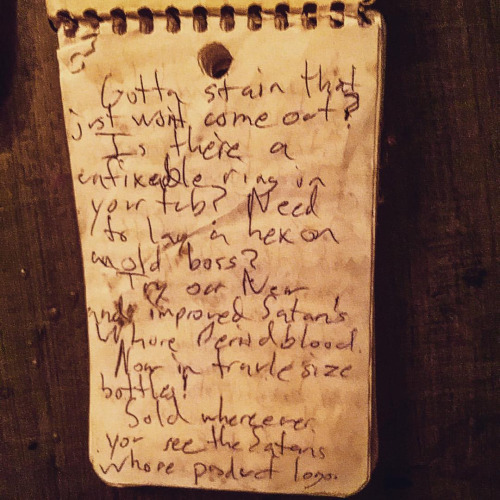 Gotta stain that
just wont come out?
Is there a
unfixeable ring in
your tub? Need
to lay a hex on
an old boss?
Try our New
and improved Satan's
Whore Period blood.
Now in travle size
bottles!
Sold whereever
you see the Satans
whore product logo.